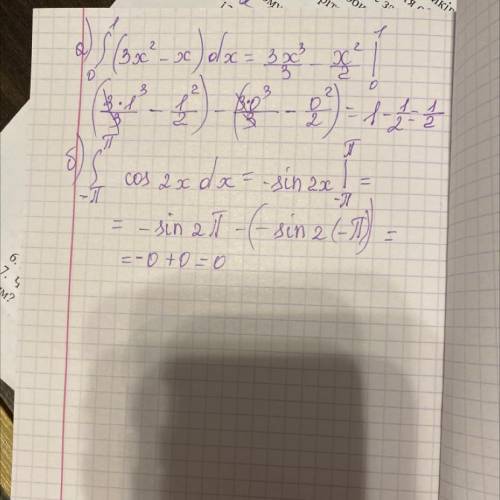 а) ∫₀¹ (3x² - x) dx = 3x³/3 - x²/2 |₀¹
(3·1³/3 - 1²/2) - (3·0³/3 - 0²/2) = 1 - 1/2 = 1/2
б) ∫₋πᴨ cos 2x dx = -sin 2x |₋πᴨ =
= -sin 2π - (-sin 2(-π)) =
= -0 + 0 = 0
6.
7.
им?